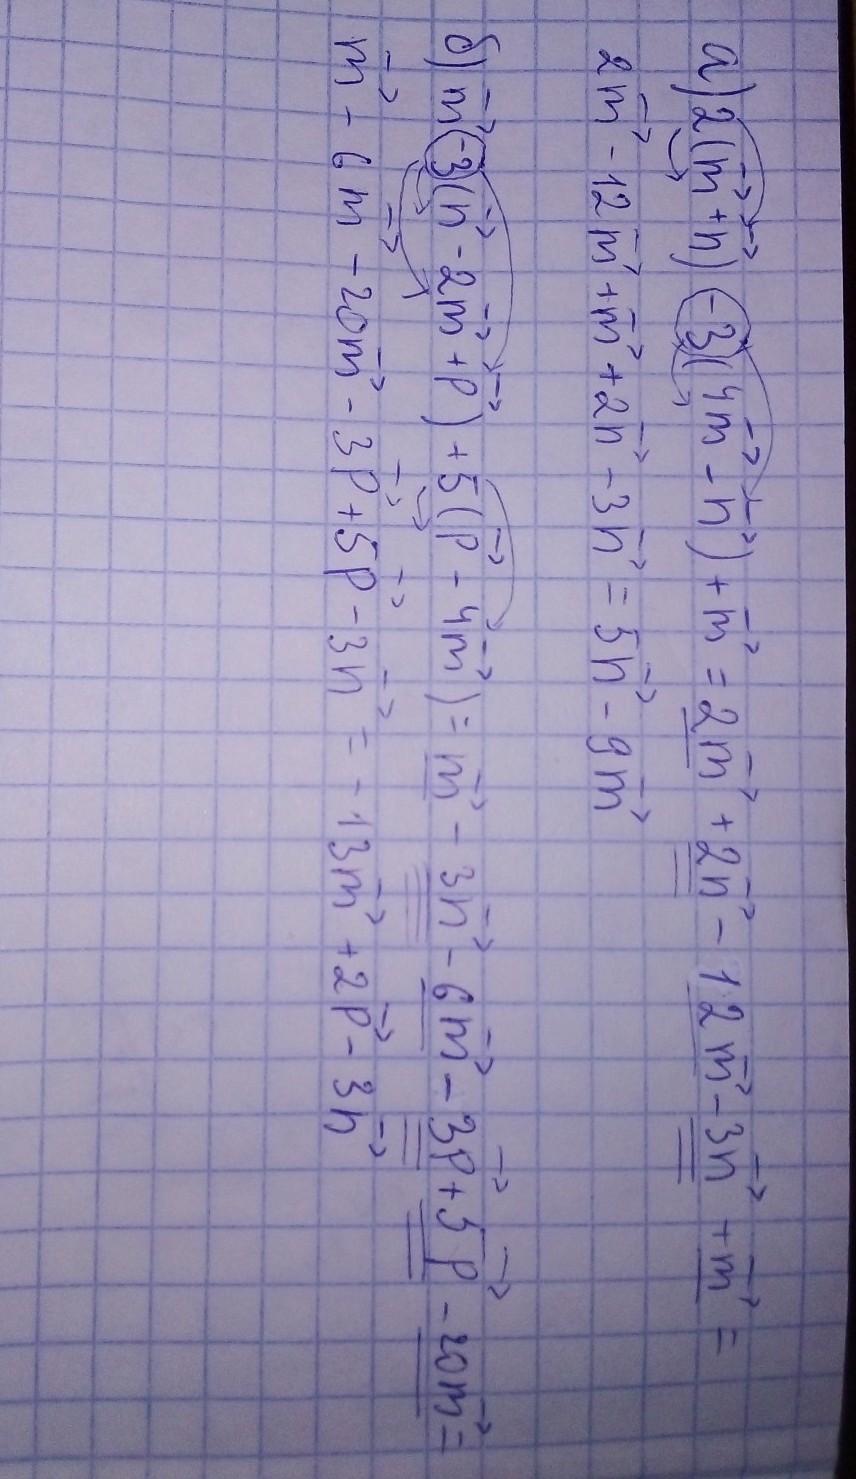 а) 2(m⃗ + n⃗) - 3(4m⃗ - n⃗) + m⃗ = 2m⃗ + 2n⃗ - 12m⃗ - 3n⃗ + m⃗ =
2m⃗ - 12m⃗ + m⃗ + 2n⃗ - 3n⃗ = 5n⃗ - 9m⃗
б) m⃗ - 3(n⃗ - 2m⃗ + p⃗) + 5(p⃗ - 4m⃗) = m⃗ - 3n⃗ - 6m⃗ - 3p⃗ + 5p⃗ - 20m⃗ =
m⃗ - 6m⃗ - 20m⃗ - 3p⃗ + 5p⃗ - 3n⃗ = - 13m⃗ + 2p⃗ - 3n⃗